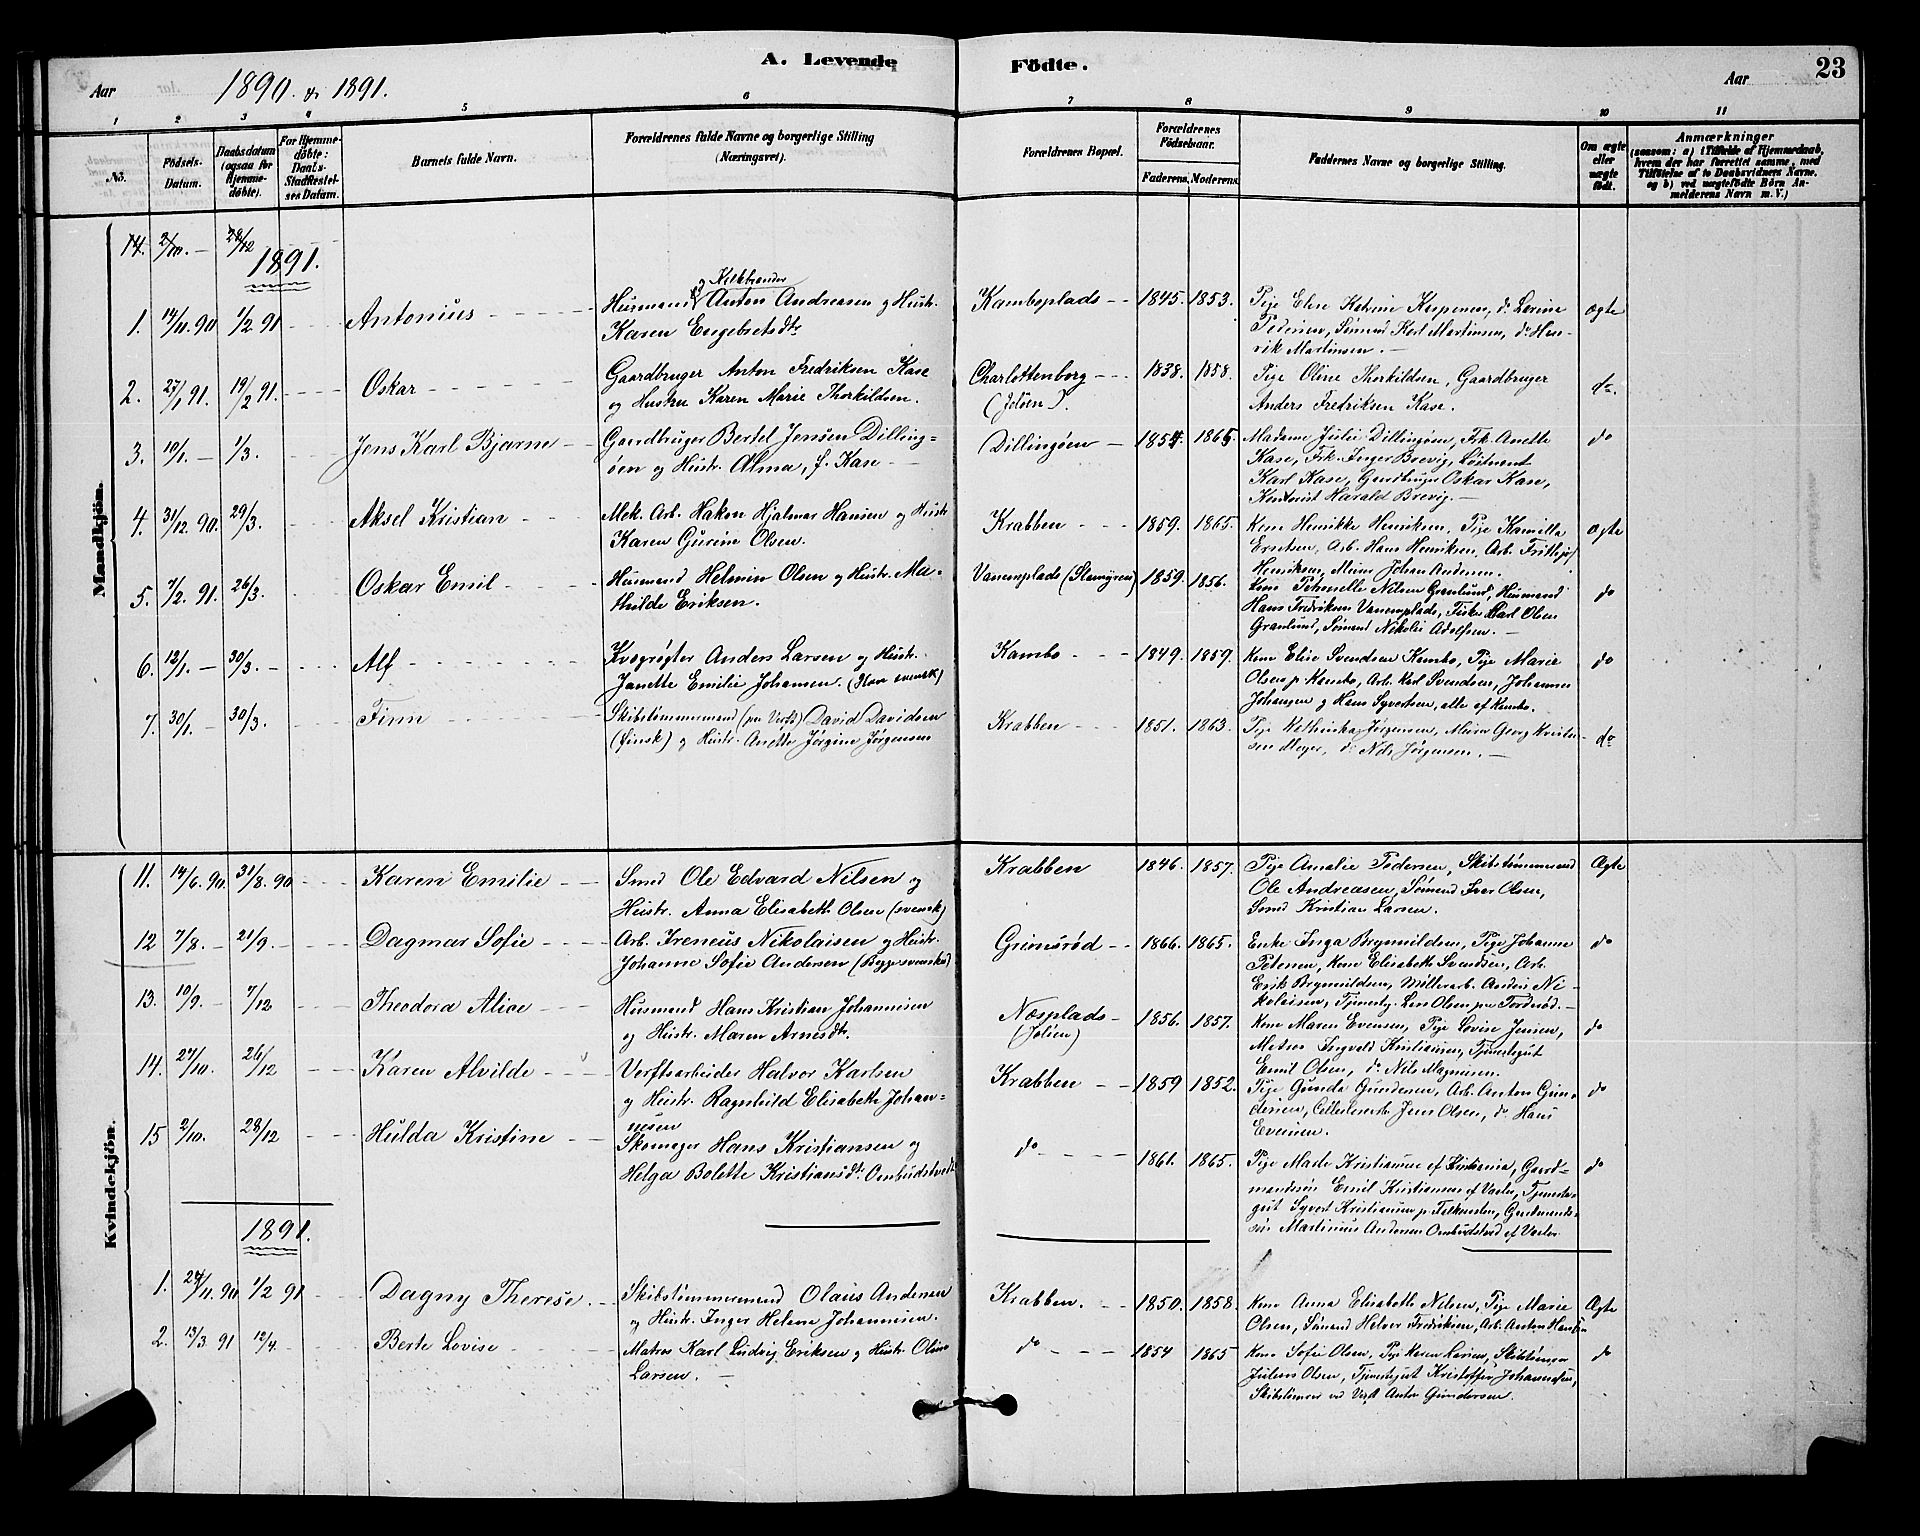 A. Levende Födte.
23
Aar 1890 & 1891.
Aar
1 2 3 4 5 6 7 8 9 10 11
No.
Födsels-Datum.
Daabsdatum (ogsaa for Hjemmedöbte).
For Hjemmedöbte: Daabs-Stadfæstelses Datum.
Barnets fulde Navn.
Forældrenes fulde Navne og borgerlige Stilling (Næringsvei).
Forældrenes Bopæl.
Forældrenes Födselsaar.
Faderens. Moderens.
Faddernes Navne og borgerlige Stilling.
Om ægte eller uægte födt.
Anmærkninger
(saasom: a) i Tilfælde af Hjemmedaab, hvem der har forrettet samme, med Tilföielse af to Daabsvidners Navne, og b) ved uægtefödte Börn Anmelderens Navn m. V.)
Mandkjön.
14. 2/10. — 28/12
1891.
1. 14/11. 90 1/2 91 Antonius Husmand og Kulbrænder Anton Andreasen og Hustr. Kamboplads 1845. 1853. Pige Elise Katrine Kaspersen, do Lovise ægte
Karen Engebretsdtr. Pedersen, Sömand Karl Martinsen, do Hen-
rik Martinsen.
2. 27/1 91. 19/2 91. Oskar Gaardbruger Anton Fredriksen Kase Charlottenborg 1838. 1858. Pige Oline Thorkildsen, Gaardbruger do.
og Hustru Karen Marie Thorkildsen. (Jelöen). Anders Fredriksen Kase.
3. 10/1. — 1/3. Jens Karl Bjarne Gaardbruger Bertel Jensen Dilling- Dillingöen 1854. 1865. Madame Julie Dillingöen, Frk. Anette do
öen og Hustr. Alma, f. Kase Kase, Frk. Inger Brevig, Löitnant
Karl Kase, Gaardbruger Oskar Kase,
Kontorist Harald Brevig.
4. 31/12. 90. 29/3. Aksel Kristian Mek. Arb. Hakon Hjalmar Hansen og Hustr. Krabben 1859. 1865. Kone Henrikke Henriksen, Pige Kamilla Ægte
Karen Gurine Olsen. Erntsen, Arb. Hans Henriksen, Arb. Frithjof
Henriksen, Murer Johan Andersen.
5. 7/2. 91. 26/3. Oskar Emil Husmand Helmin Olsen og Hustr. Ma- Vanemplads (Slamyren) 1859. 1856. Kone Petronelle Nilsen Grønlund, Husmand do
thilde Eriksen. Hans Fredriksen Vanemplads, Fisker Karl Olsen
Grønlund, Sømand Nikolai Adolfsen.
6. 12/1. — 30/3. Alf Kvægrøgter Anders Larsen og Hustr. Kambo 1849. 1859. Kone Elise Svendsen Kambo, Pige Marie do
Janette Emilie Johansen. (Hun svensk) Olsen p. Kambo, Arb. Karl Svendsen, Johannes
Johansen og Hans Syvertsen, alle af Kambo.
7. 30/1. 30/3. Finn Skibstömmermand (paa Verft) David Davidsen Krabben 1851. 1863. Pige Jørgensen, Murer Georg Kristen- do
(finsk) og Hustr. Anette Jørgine Jørgensen sen, do Nils Jørgensen.
Kvindekjön.
11. 14/6. 90. 31/8. 90 Karen Emilie Smed Ole Edvard Nilsen og Krabben 1846. 1857. Pige Amalie Pedersen, Skibstömmermand Ægte
Hustr. Anna Elisabeth Olsen (svensk) Ole Andreasen, Sømand Ivar Olsen,
Smed Kristian Larsen.
12 7/8. — 21/9. Dagmar Sofie Arb. Ireneus Nikolaisen og Hustr. Grimsrød 1866. 1865. Enke Inga Brynnildsen, Pige Johanne do
Johanne Sofie Andersen (Begge svenske) Petersen, Kone Elisabeth Svendsen, Arb.
Erik Brynnildsen, Möllerarb. Anders Ni-
kolaisen, Tjenestg. Lars Olsen paa Torderød.
13. 10/9. 7/12 Theodora Alice Husmand Hans Kristian Johannisen Næsplads 1856. 1857. Kone Maren Evensen, Pige Lovise Jensen, do
og Hustr. Maren Arnesdtr. (Jelöen) Matros Ingvald Kristiansen, Tjenestegut
Emil Olsen, do Nils Magnusen.
14. 27/10. 26/12 Karen Alvilde Verftsarbeider Halvor Karlsen Krabben 1859 1852. Pige Gunda Gundersen, Arb. Anton Gun- do
og Hustr. Ragnhild Elisabeth Johan- dersen, Jens Olsen, do Hans
nesen Evensen.
15 2/10. 28/12 Hulda Kristine Skomager Hans Kristiansen og do 1861. 1865. Pige Marte Kristiansen af Kristiania, Gaard- do
Helga Bolette Kristiansdtr. Ombudstvedt mandssön Emil Kristiansen af Varler, Tjeneste-
gut Syvert Kristiansen p. Falkensten, Gaardmands-
sön Martinius Andersen Ombudstved af Varler
1891.
1. 24/11. 90 1/2 91 Dagny Therese Skibstömmermand Olaus Andersen Krabben. 1850. 1858. Kone Anna Elisabeth Nilsen, Pige Marie Ægte
og Hustr. Inger Helene Johannisen. Olsen, Sömand Helver Fredriksen, Arb. Anton Hansen
2. 13/3. 91 12/4. Berte Lovise Matros Karl Ludvig Eriksen og Hustr. Oline do 1854 1865 Kone Sofie Olsen, Pige Karen Larsen, Skibstömmer do
Larsen. Julius Olsen, Tjenestegut Kristoffer Johannesen,
Skibstömmer ved Verft Anton Gundersen.